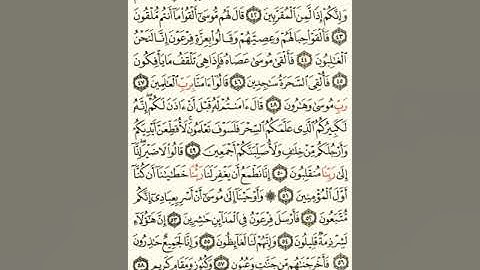 وَإِنَّكُمْ إِذًا لَّمِنَ ٱلْمُقَرَّبِينَ ٤٢ قَالَ لَهُم مُّوسَىٰٓ أَلْقُوا۟ مَآ أَنتُم مُّلْقُونَ
٤٣ فَأَلْقَوْا۟ حِبَالَهُمْ وَعِصِيَّهُمْ وَقَالُوا۟ بِعِزَّةِ فِرْعَوْنَ إِنَّا لَنَحْنُ
ٱلْغَٰلِبُونَ ٤٤ فَأَلْقَىٰ مُوسَىٰ عَصَاهُ فَإِذَا هِىَ تَلْقَفُ مَا يَأْفِكُونَ
٤٥ فَأُلْقِىَ ٱلسَّحَرَةُ سَٰجِدِينَ ٤٦ قَالُوٓا۟ ءَامَنَّا بِرَبِّ ٱلْعَٰلَمِينَ ٤٧
رَبِّ مُوسَىٰ وَهَٰرُونَ ٤٨ قَالَ ءَامَنتُمْ لَهُۥ قَبْلَ أَنْ ءَاذَنَ لَكُمْ إِنَّهُۥ
لَكَبِيرُكُمُ ٱلَّذِى عَلَّمَكُمُ ٱلسِّحْرَ فَلَسَوْفَ تَعْلَمُونَ لَأُقَطِّعَنَّ أَيْدِيَكُمْ
وَأَرْجُلَكُم مِّنْ خِلَٰفٍ وَلَأُصَلِّبَنَّكُمْ أَجْمَعِينَ ٤٩ قَالُوا۟ لَا ضَيْرَ إِنَّآ
إِلَىٰ رَبِّنَا مُنقَلِبُونَ ٥٠ إِنَّا نَطْمَعُ أَن يَغْفِرَ لَنَا رَبُّنَا خَطَٰيَٰنَآ أَن كُنَّآ
أَوَّلَ ٱلْمُؤْمِنِينَ ٥١ ۞ وَأَوْحَيْنَآ إِلَىٰ مُوسَىٰٓ أَنْ أَسْرِ بِعِبَادِىٓ إِنَّكُم
مُّتَّبَعُونَ ٥٢ فَأَرْسَلَ فِرْعَوْنُ فِى ٱلْمَدَآئِنِ حَٰشِرِينَ ٥٣ إِنَّ هَٰٓؤُلَآءِ
لَشِرْذِمَةٌ قَلِيلُونَ ٥٤ وَإِنَّهُمْ لَنَا لَغَآئِظُونَ ٥٥ وَإِنَّا لَجَمِيعٌ حَٰذِرُونَ
٥٦ فَأَخْرَجْنَٰهُم مِّن جَنَّٰتٍ وَعُيُونٍ ٥٧ وَكُنُوزٍ وَمَقَامٍ كَرِيمٍ ٥٨